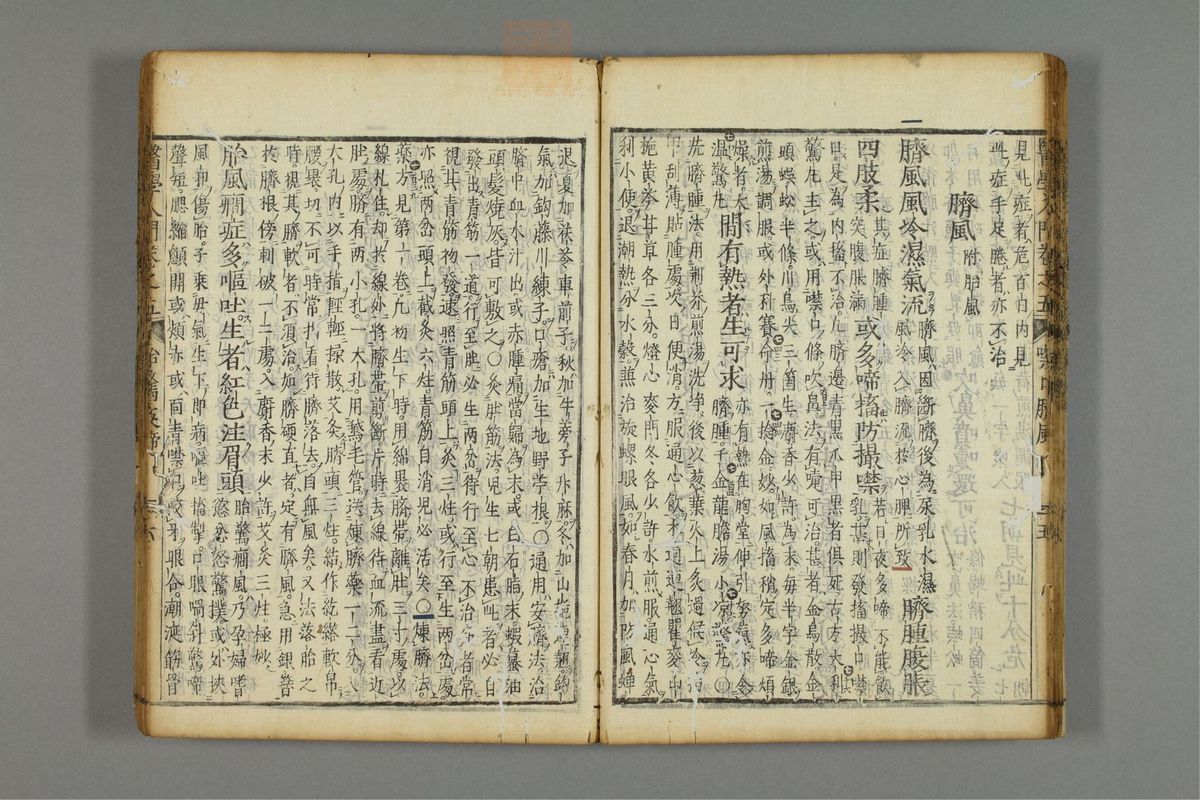 見此症者危百日內見
此症手足踡者亦不治
臍風 附胎風
臍風風冷濕氣流 臍風因斷臍後為尿乳水濕風冷入臍流於心脾所致 臍腫腹脹
四肢柔 其症臍腫突腹脹滿 或多啼搐防撮噤 若日夜多啼不能飲乳甚則發搐撮口噤
口是為內搐不治凡臍邊青黑爪甲黑者俱死古方大利
驚丸主之或用噤口條吹鼻法有嚏可治甚者金烏散金
頭蜈蚣半條川烏尖三箇生麝香少許為末每半字金銀
煎湯調服或外科賽命丹一捻金妙如風搐稍定多啼煩
燥者大溫驚丸 間有熱者生可求 亦有熱在胸堂伸引努氣亦令臍腫千金龍膽湯小
洗臍腫法用荊芥煎湯洗淨後以葱葉火上炙過候冷
甲刮薄貼腫處次日便消方服通心飲
梔黃芩甘草各三分燈心麥門冬各少許水煎服通心氣
利小便退潮熱分水穀兼治旋螺眼風如春月加防風蟬
退夏加茯苓車前子秋加牛蒡子升麻冬加山梔連翹鉤
氣加鉤藤川練子口瘡加生地野苧根〇通用安臍法治
臍中血水汁出或赤腫痛當歸為末或白石脂末蝦蟇油
頭髮燒灰皆可敷之〇灸肚筋法兒生七朝患此者必自
發出青筋一道行至肚必生兩岔行至心不治知者常
視其青筋初發速照青筋頭上灸三炷或行至生兩岔處
亦照兩岔頭上截灸六炷青筋自消兒必活矣〇煉臍法
藥方見第一卷凡初生下時用綿裹臍帶離肚三寸處以
線扎住却於線外將臍帶剪斷片時去線待血流盡看近
肚處臍有兩小孔一大孔用鵝毛管送煉臍藥一二分入
大孔內以手指輕輕揉散艾灸臍頭三炷結作紇繨軟帛
腰裹切不可時常打看待臍落去自無風矣又法落胎之
時視其臍軟者不須治如臍硬直者定有臍風急用銀簪
於臍根傍刺破一二處入麝香末少許艾灸三炷極妙
胎風癇症多嘔吐生者紅色注眉頭 胎驚癇風乃孕婦嗜慾忿怒驚撲或外挾
風邪傷胎子乘母氣生下即病嘔吐搐掣口眼喎斜驚啼
聲短腮縮顖開或頰赤或面青噤口咬牙眼合潮涎筋骨